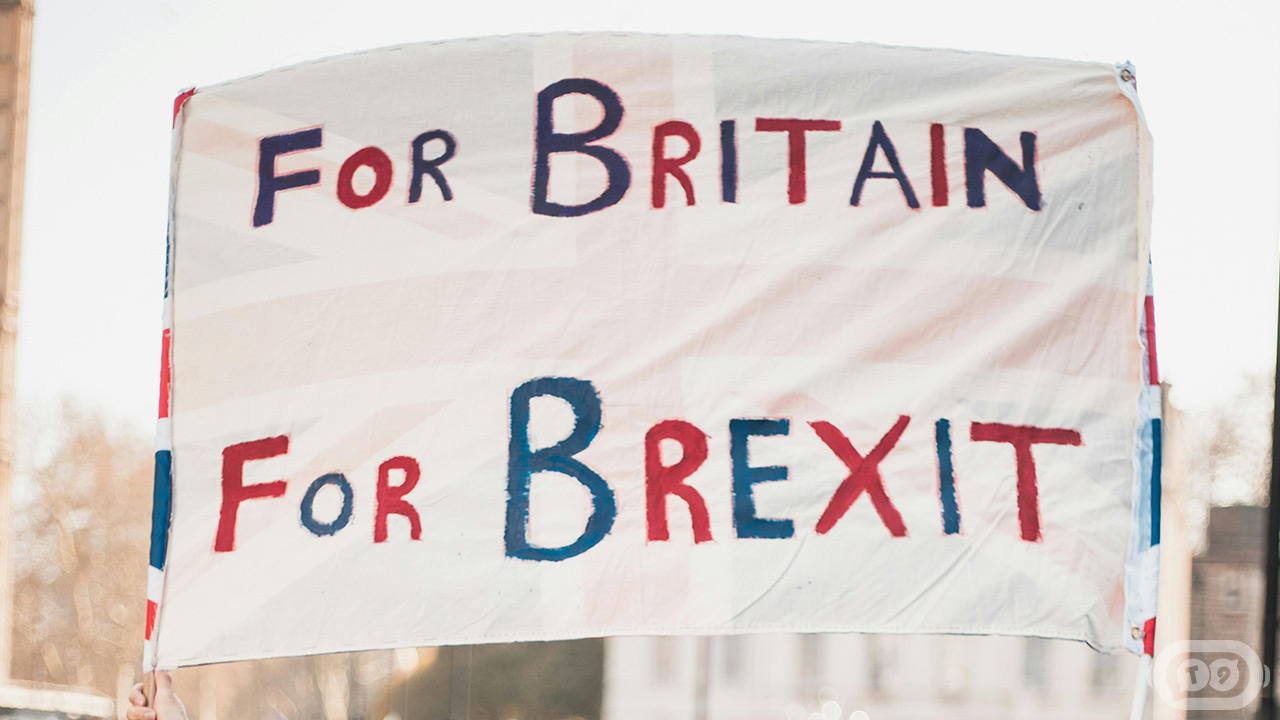 FOR BRITAIN
FOR BREXIT
T9